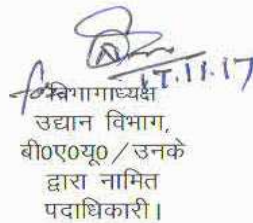 17.11.17
विभागाध्यक्ष
उद्यान विभाग,
बी0ए0यू0/उनके
द्वारा नामित
पदाधिकारी।